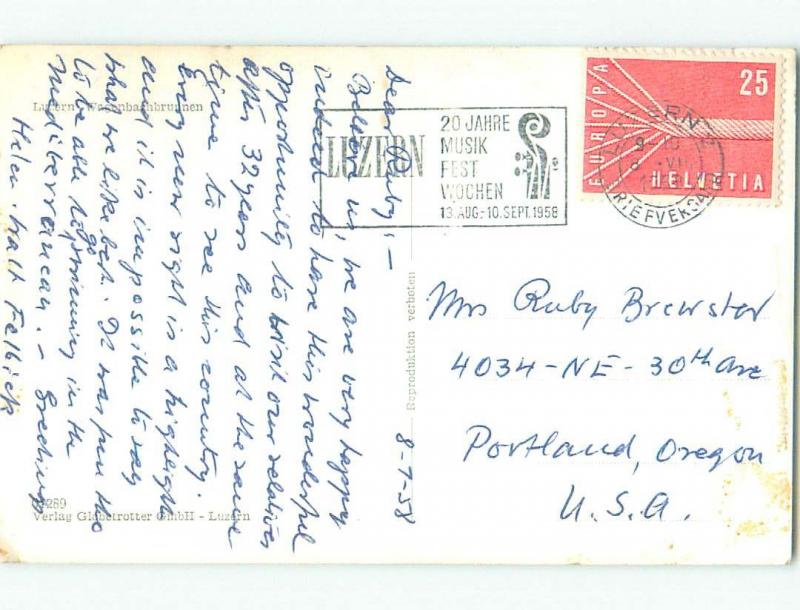 Luzern, Wagenbachbrunnen
Dear Ruby; —
Believe us, we are very happy
indeed to have this wonderful
opportunity to visit our relatives
after 32 years and at the same
time to see this country.
Every new sight is a highlight
and it is impossible to say
what we like best. It was fun too
to be able to go swimming in the
Mediterranean. — Greetings
Helen, Walt Felbick
8-7-58
289
Verlag Globetrotter GmbH - Luzern
Reproduktion verboten
LUZERN
20 JAHRE
MUSIK
FEST
WOCHEN
13.AUG.-10.SEPT.1958
EUROPA
25
HELVETIA
LUZERN
BRIEFVERSAND
Mrs Ruby Brewster
4034-NE-30th Ave
Portland, Oregon
U.S.A.